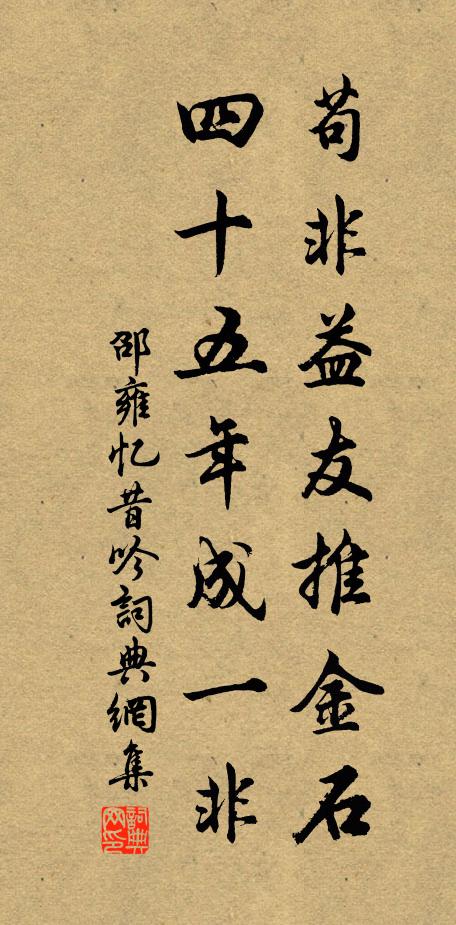 苟非益友推金石
四十五年成一非
邵雍忆昔吟詞典網集
詞典网印